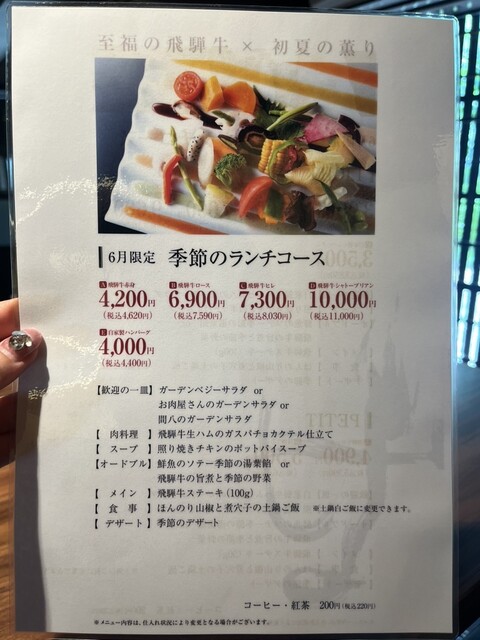 至福の飛騨牛 × 初夏の薫り
6月限定 季節のランチコース
A 飛騨牛赤身 B 飛騨牛ロース C 飛騨牛ヒレ D 飛騨牛シャトーブリアン
4,200円 6,900円 7,300円 10,000円
(税込4,620円) (税込7,590円) (税込8,030円) (税込11,000円)
E 自家製ハンバーグ
4,000円
(税込4,400円)
【歓迎の一皿】ガーデンベジーサラダ or
お肉屋さんのガーデンサラダ or
間八のガーデンサラダ
【 肉料理 】飛騨牛生ハムのガスパチョカクテル仕立て
【 スープ 】照り焼きチキンのポットパイスープ
【オードブル】鮮魚のソテー季節の湯葉餡 or
飛騨牛の旨煮と季節の野菜
【 メイン 】飛騨牛ステーキ (100g)
【 食 事 】ほんのり山椒と煮穴子の土鍋ご飯 ※土鍋白ご飯に変更できます。
【 デザート 】季節のデザート
コーヒー・紅茶 200円 (税込220円)
※メニュー内容は、仕入れ状況により変更となる場合がございます。